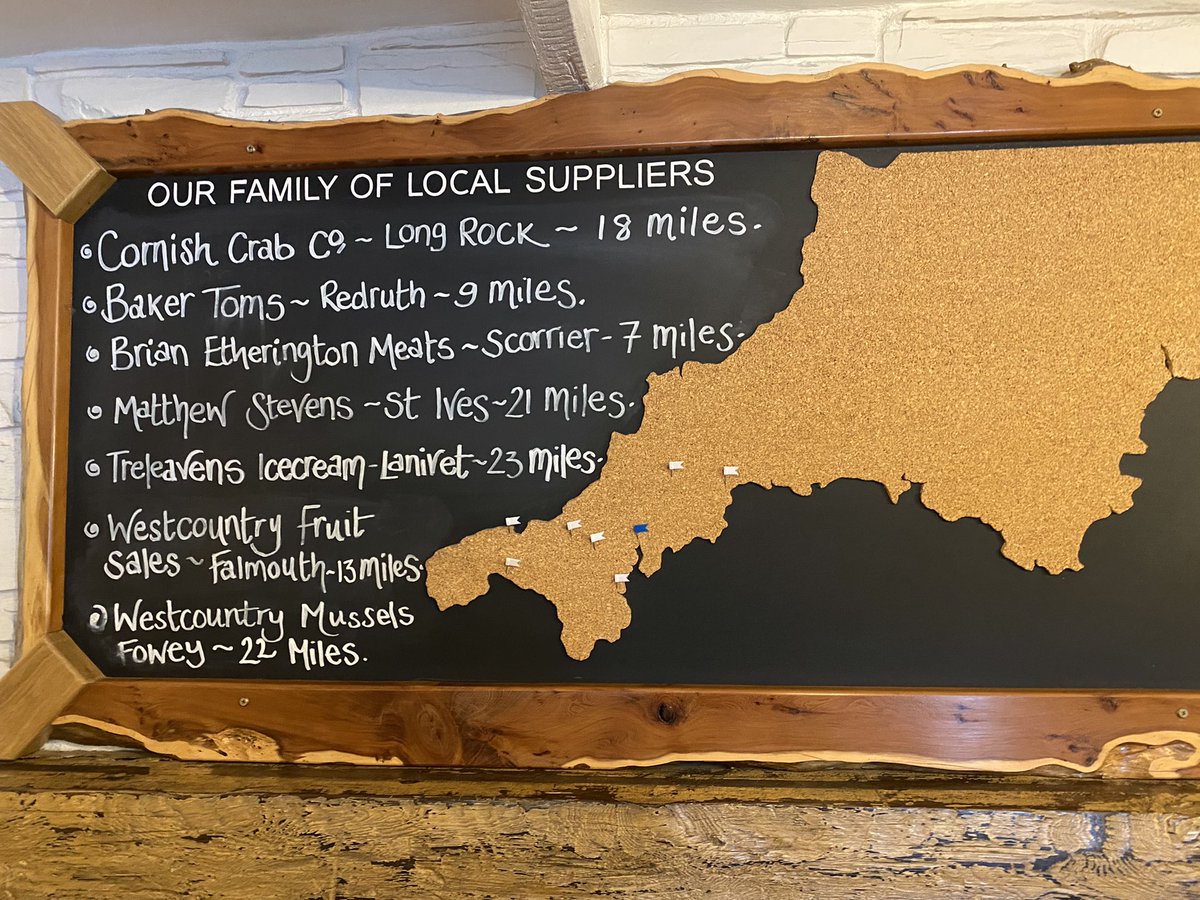 OUR FAMILY OF LOCAL SUPPLIERS
Cornish Crab Co, ~ Long Rock ~ 18 miles.
Baker Toms ~ Redruth ~ 9 miles.
Brian Etherington Meats ~ Scorrier - 7 miles.
Matthew Stevens ~ St Ives ~ 21 miles.
Treleavens Icecream - Lanivet ~ 23 miles.
Westcountry Fruit
Sales ~ Falmouth - 13 miles.
Westcountry Mussels
Fowey ~ 22 Miles.